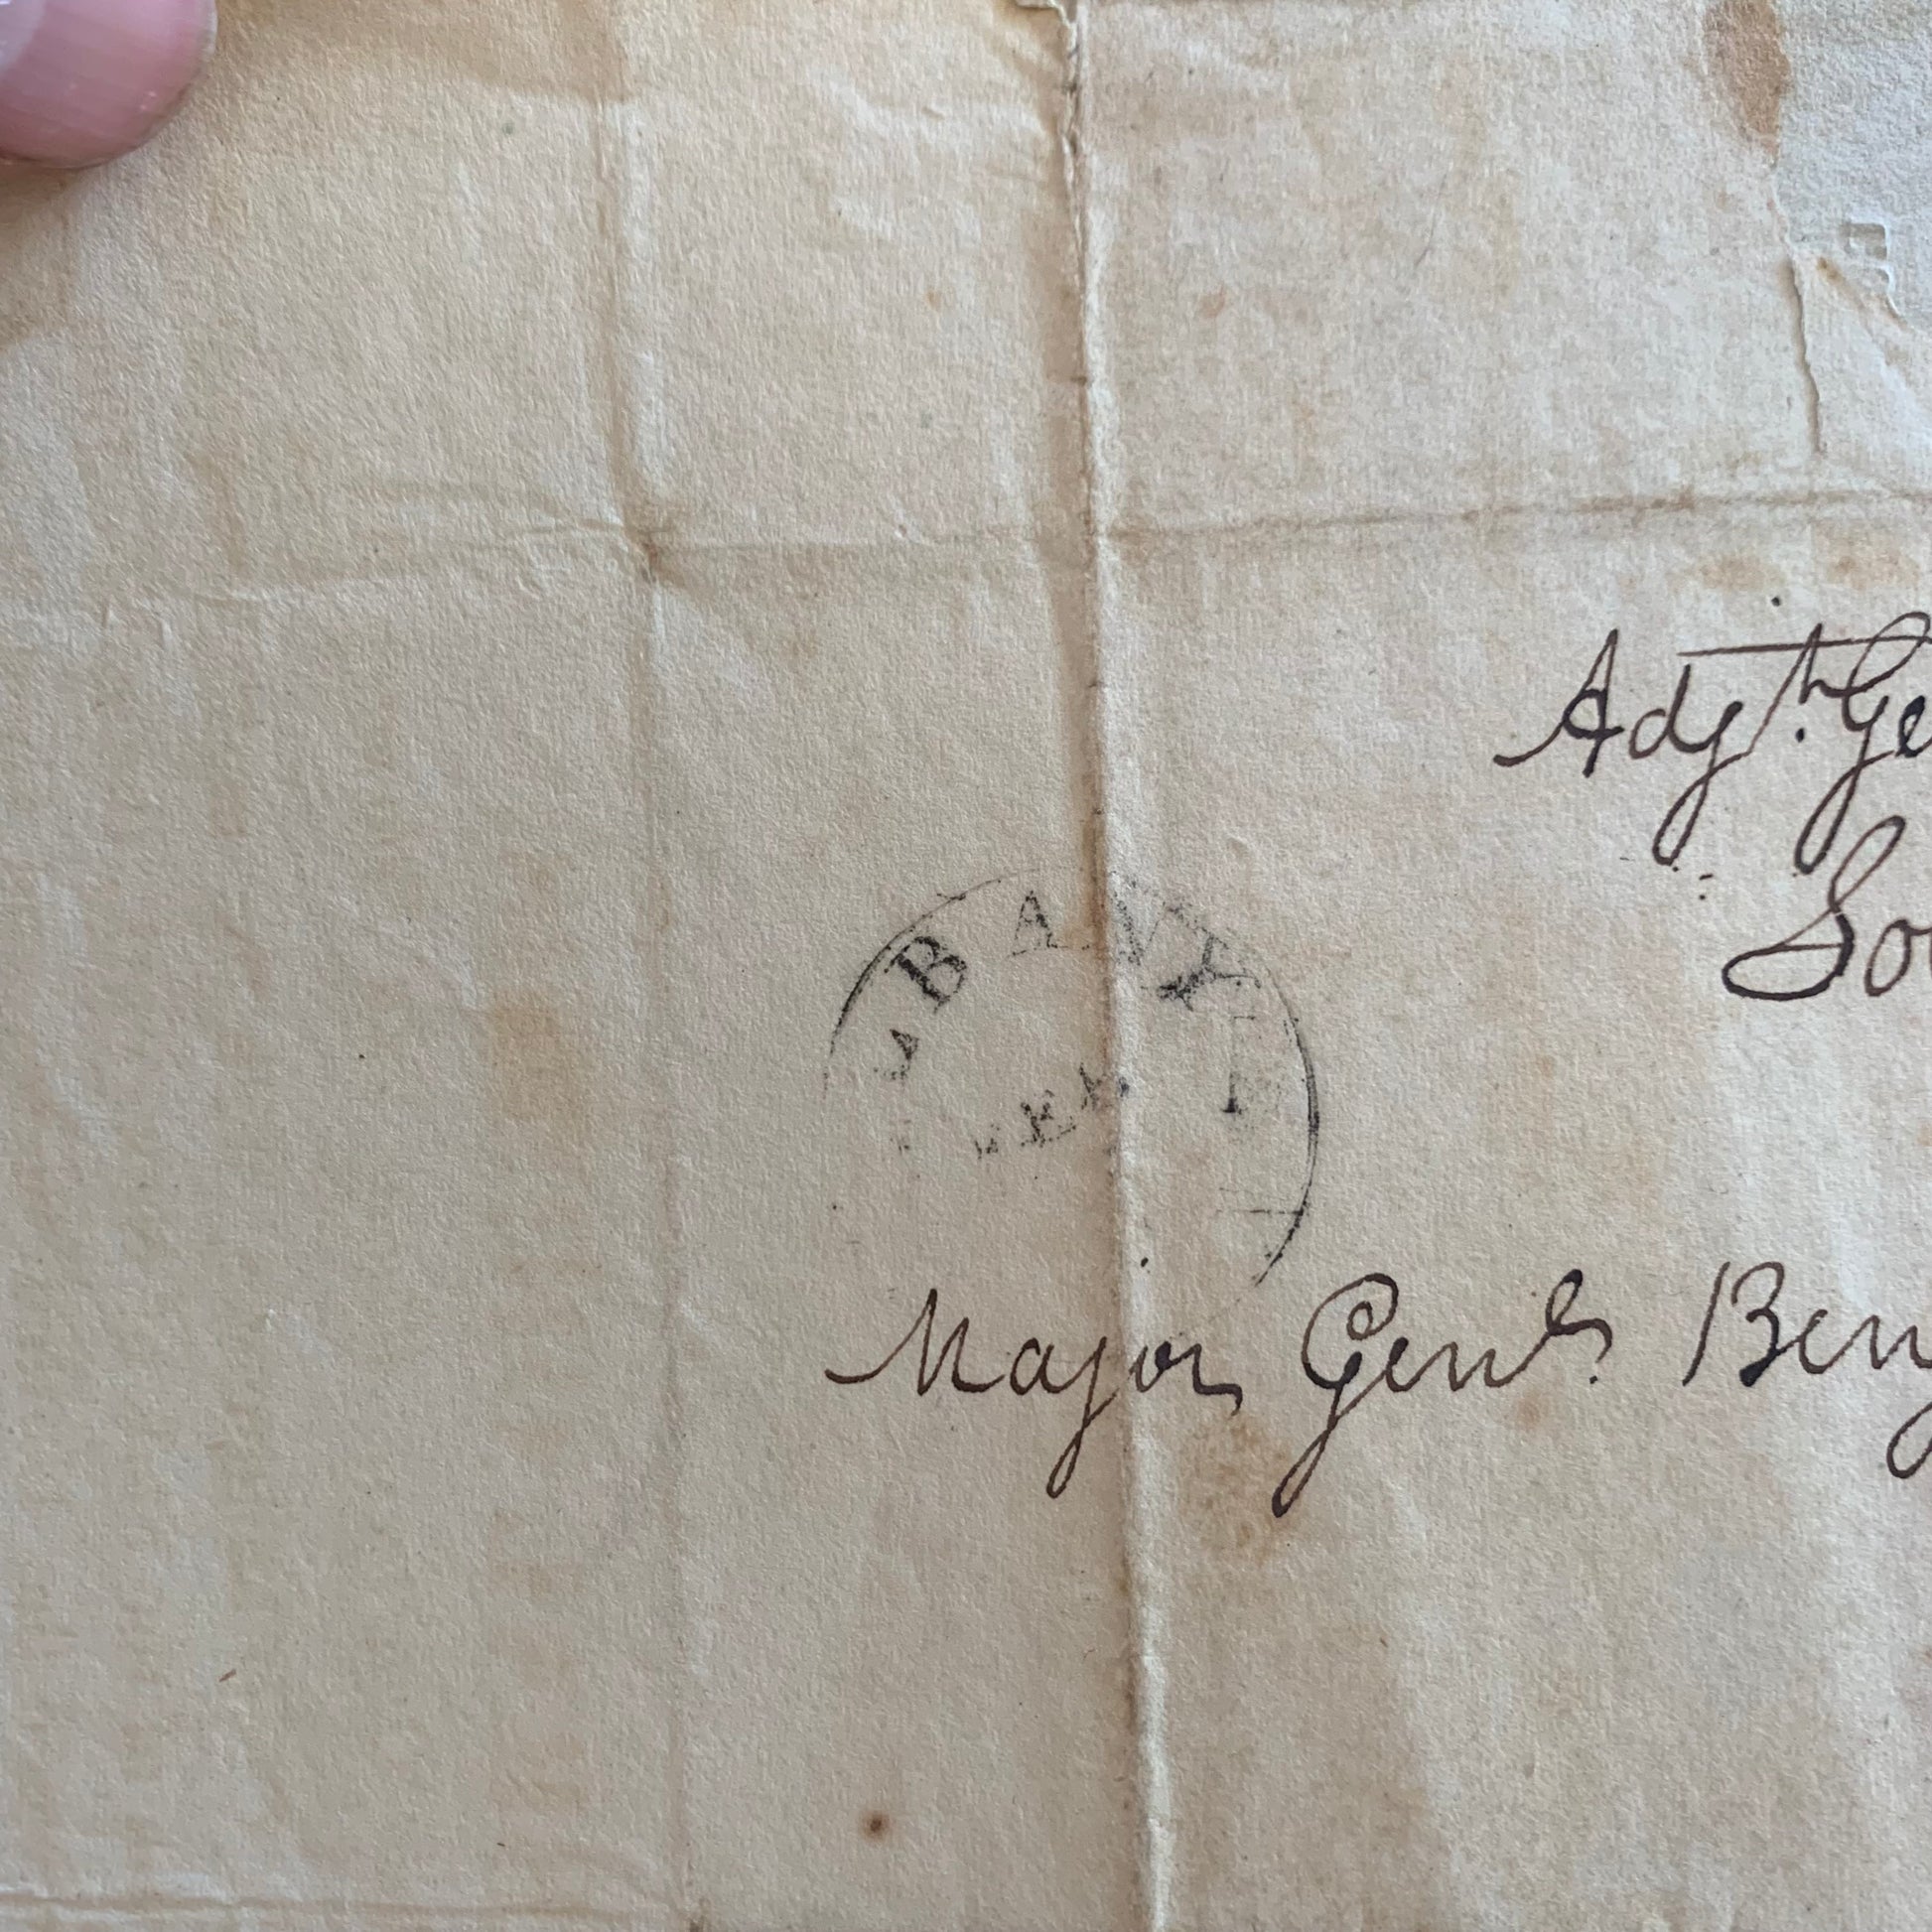 Adjt. Ge
So
LBANY
FEB
Major Genl. Benj